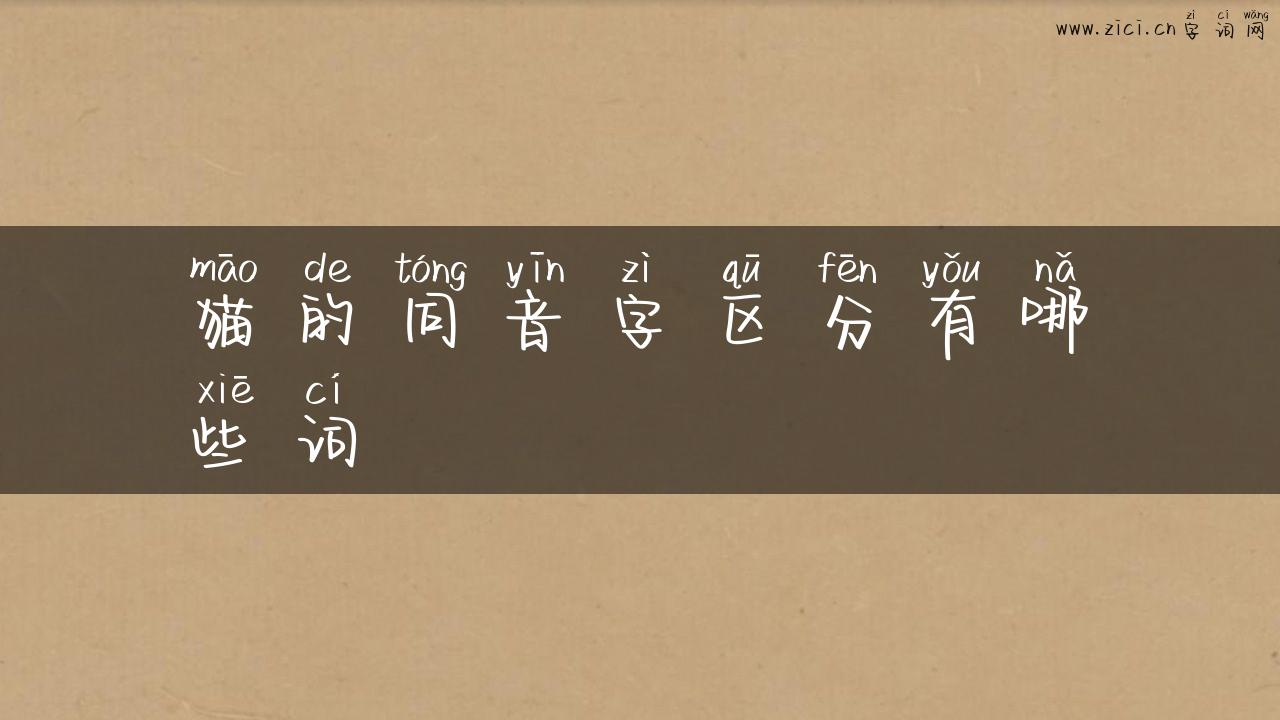 zì cí wǎng
www.zici.cn 字词网
māo de tóng yīn zì qū fēn yǒu nǎ
猫的同音字区分有哪
xiē cí
些词